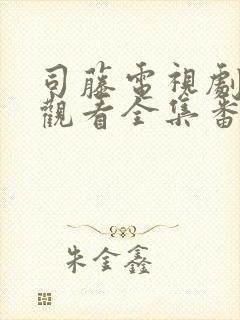 司藤電視劇
觀看全集番
朱金鑫